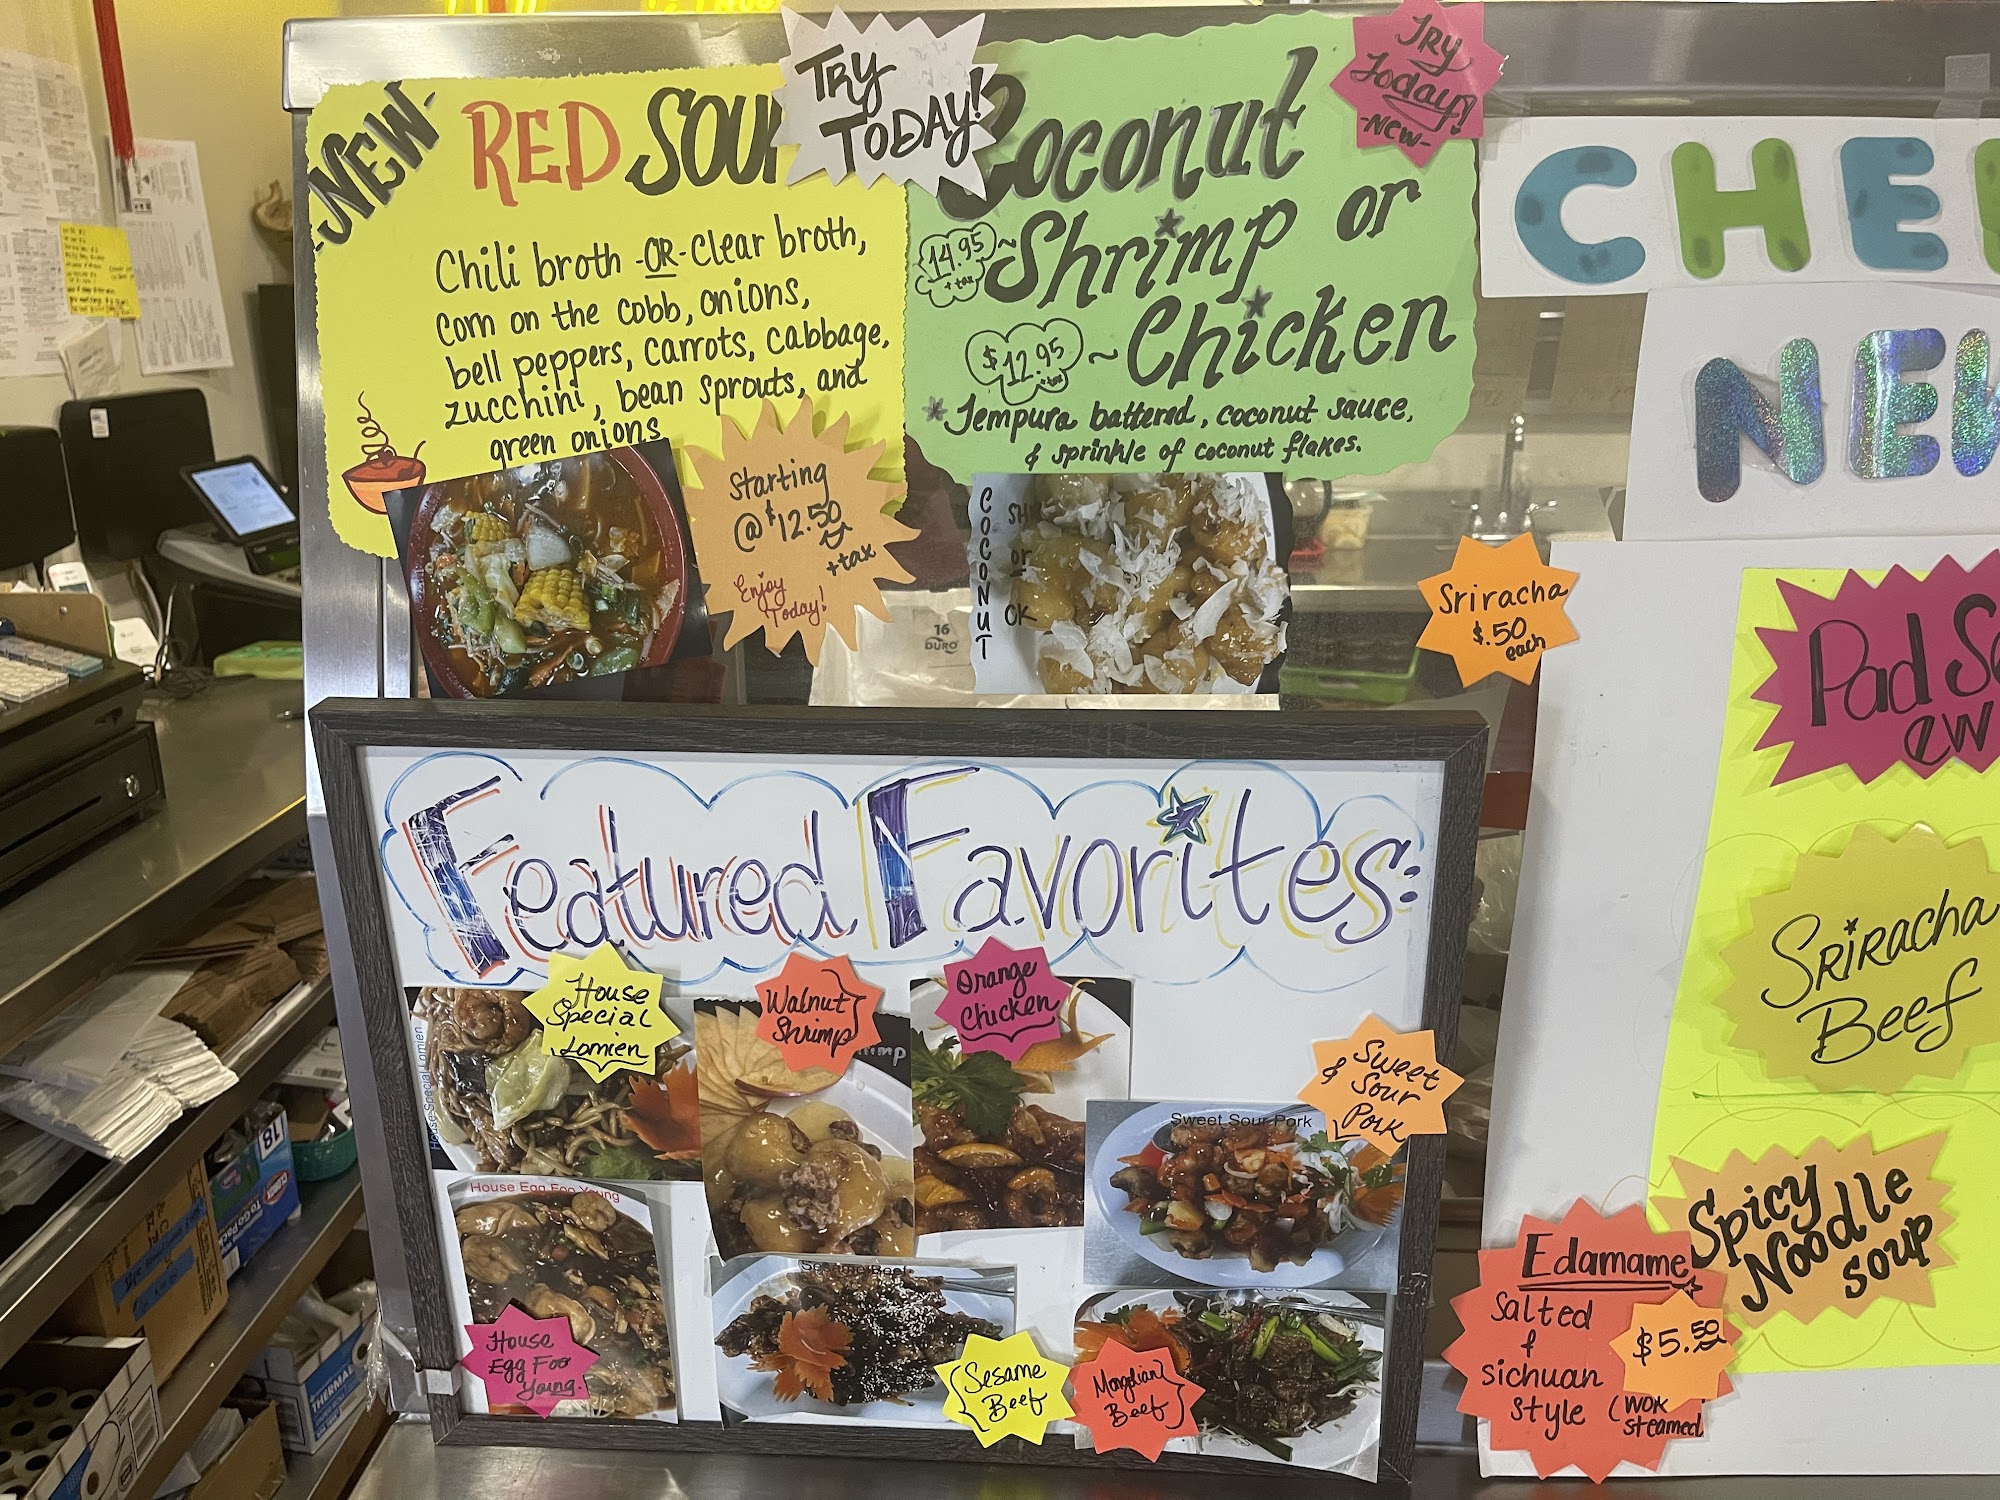 -NEW-
RED SOU
TRY
TODAY!
Chili broth -OR- Clear broth,
corn on the cobb, onions,
bell peppers, carrots, cabbage,
zucchini, bean sprouts, and
green onions
Starting
@ $12.50
+tax
Enjoy
Today!
Coconut
Shrimp or
14.95
+ tax
~
Chicken
$12.95
+tax
~
Tempura battered, coconut sauce,
& sprinkle of coconut flakes.
TRY
Today!
-NEW-
COCONUT
SH
or
CK
16
DURO
CHE
NEW
Sriracha
$.50
each
Pad Se
ew
SRiRacha
Beef
Spicy
Noodle
soup
Edamame
Salted
&
Sichuan
Style
(WOK
Steamed
$5.50
Featured Favorites:
House
Special
Lomien
House Special Lomien
Walnut
Shrimp
imp
Orange
Chicken
Sweet
& Sour
Pork
Sweet Sour Pork
House Egg Foo Young
House
Egg Foo
Young.
Sesame Beef
Sesame
Beef
Mongolian
Beef
Beef
18
CLOROX
To Go Pack
THERMAL